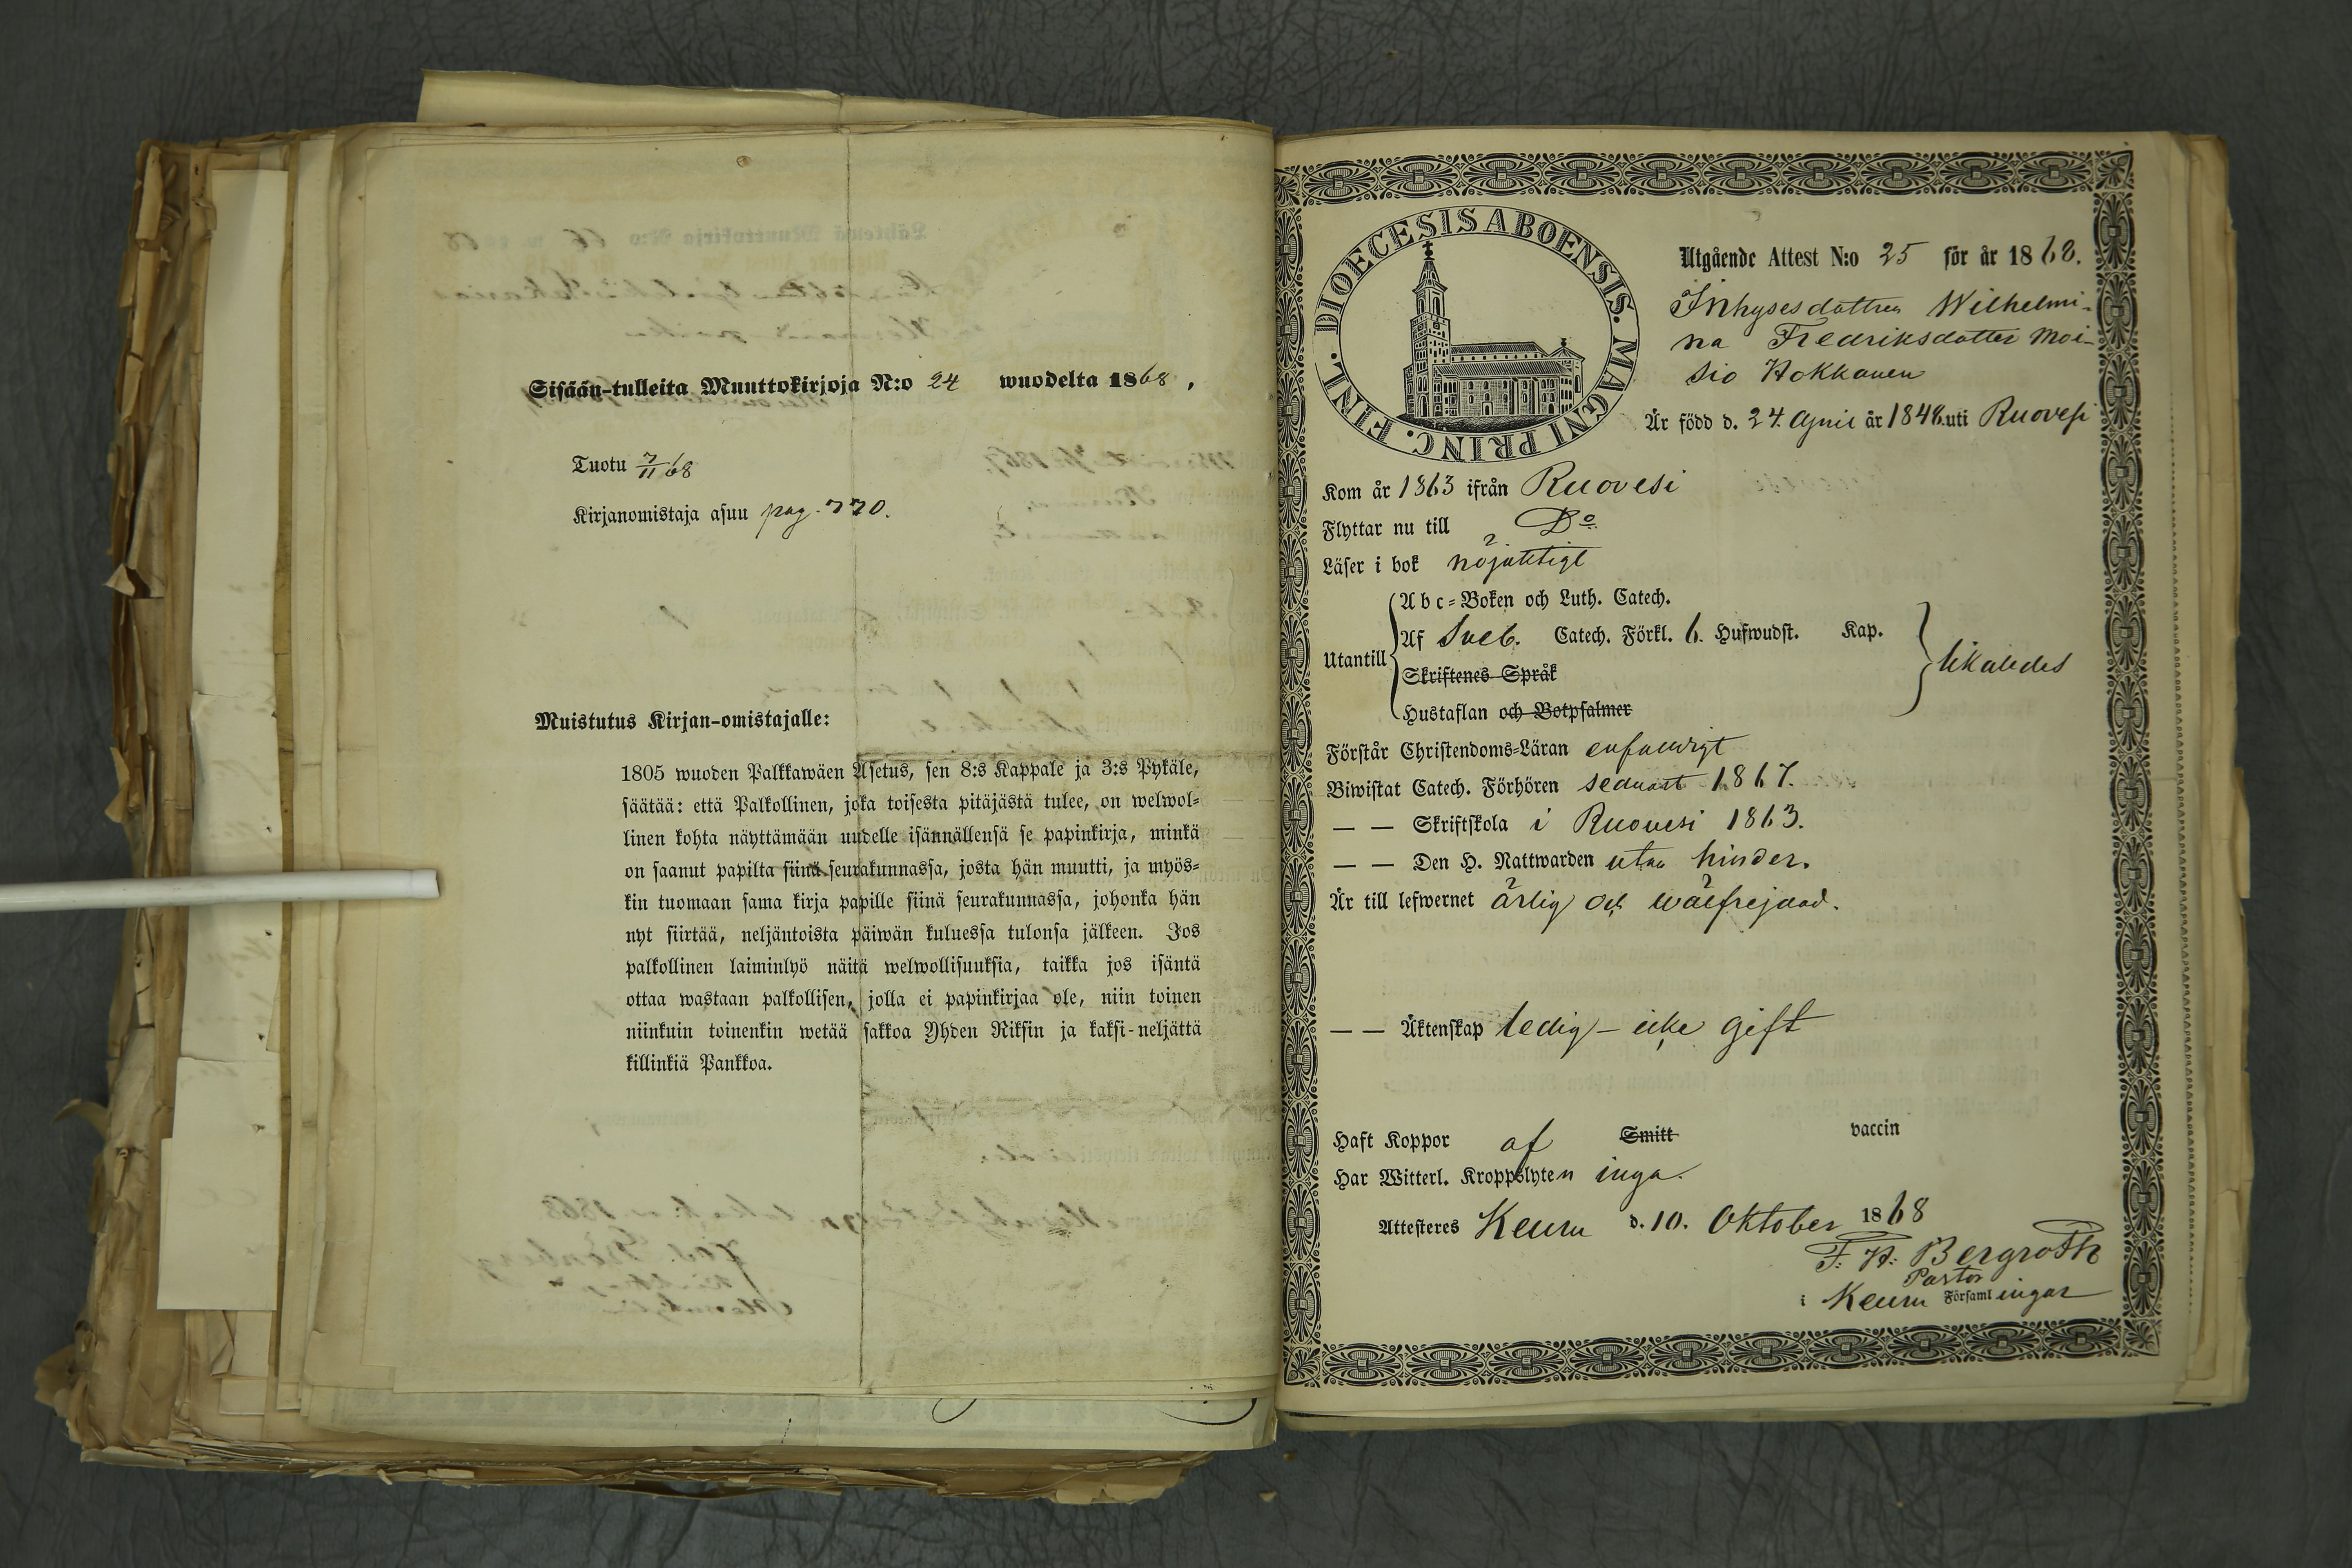 Sisään-tulleita Muuttokirjoja N:o 24 wuodelta 1868,
Tuotu 7/11 68
Kirjanomistaja asuu pag. 770.
Muistutus Kirjan-omistajalle:
1805 wuoden Palkkawäen Asetus, sen 8:s Kappale ja 3:s Pykäle,
säätää: että Palkollinen, joka toisesta pitäjästä tulee, on welwol=
linen kohta näyttämään uudelle isännällensä se papinkirja, minkä
on saanut papilta siinä seurakunnassa, josta hän muutti, ja myös=
kin tuomaan sama kirja papille siinä seurakunnassa, johonka hän
nyt siirtää, neljäntoista päiwän kuluessa tulonsa jälkeen. Jos
palkollinen laiminlyö näitä welwollisuuksia, taikka jos isäntä
ottaa wastaan palkollisen, jolla ei papinkirjaa ole, niin toinen
niinkuin toinenkin wetää sakkoa Yhden Riksin ja kaksi-neljättä
killinkiä Pankkoa.
DIOECESIS ABOENSIS. MAGNI PRINC. FINL.
Utgående Attest N:o 25 för år 1868.
Inhysesdottren Wilhelmi-
na Fredriksdotter Moi-
sio Hokkanen
Är född d. 24. April år 1848. uti Ruovesi
Kom år 1863 ifrån Ruovesi
Flyttar nu till Do
Läser i bok nöjaktigt
Utantill
Abc=Boken och Luth. Catech.
Af Sveb. Catech. Förkl. 6. Hufwudst. Kap.
Skriftenes Språk
Hustaflan och Botpsalmer
likaledes
Förstår Christendoms=Läran enfaldigt
Biwistat Catech. Förhören sednast 1867.
— — Skriftskola i Ruovesi 1863.
— — Den H. Nattwarden utan hinder.
Är till lefwernet ärlig och wälfrejdad.
— — Äktenskap ledig – icke gift
Haft Koppor af Smitt vaccin
Har Witterl. Kroppslyten inga.
Attesteres Keuru d. 10. Oktober 1868
F. H. Bergroth
Pastor
i Keuru Församlingar